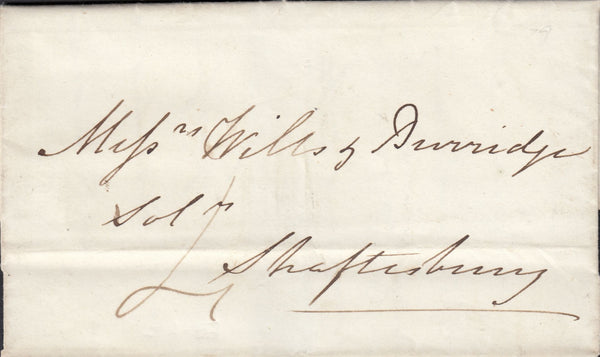 Messrs Wills & Burridge
Solrs
Shaftesbury